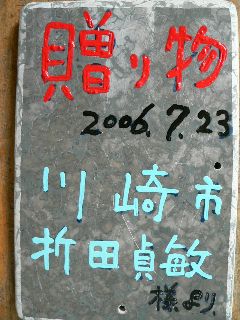 贈り物
2006.7.23
川崎市
折田貞敏
様より